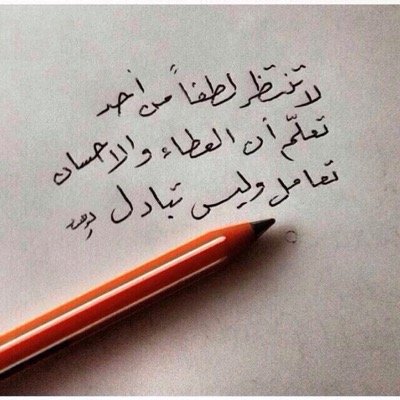 لا تنتظر لطفاً من أحد
تعلّم أن العطاء والاحسان
تعامل وليس تبادل